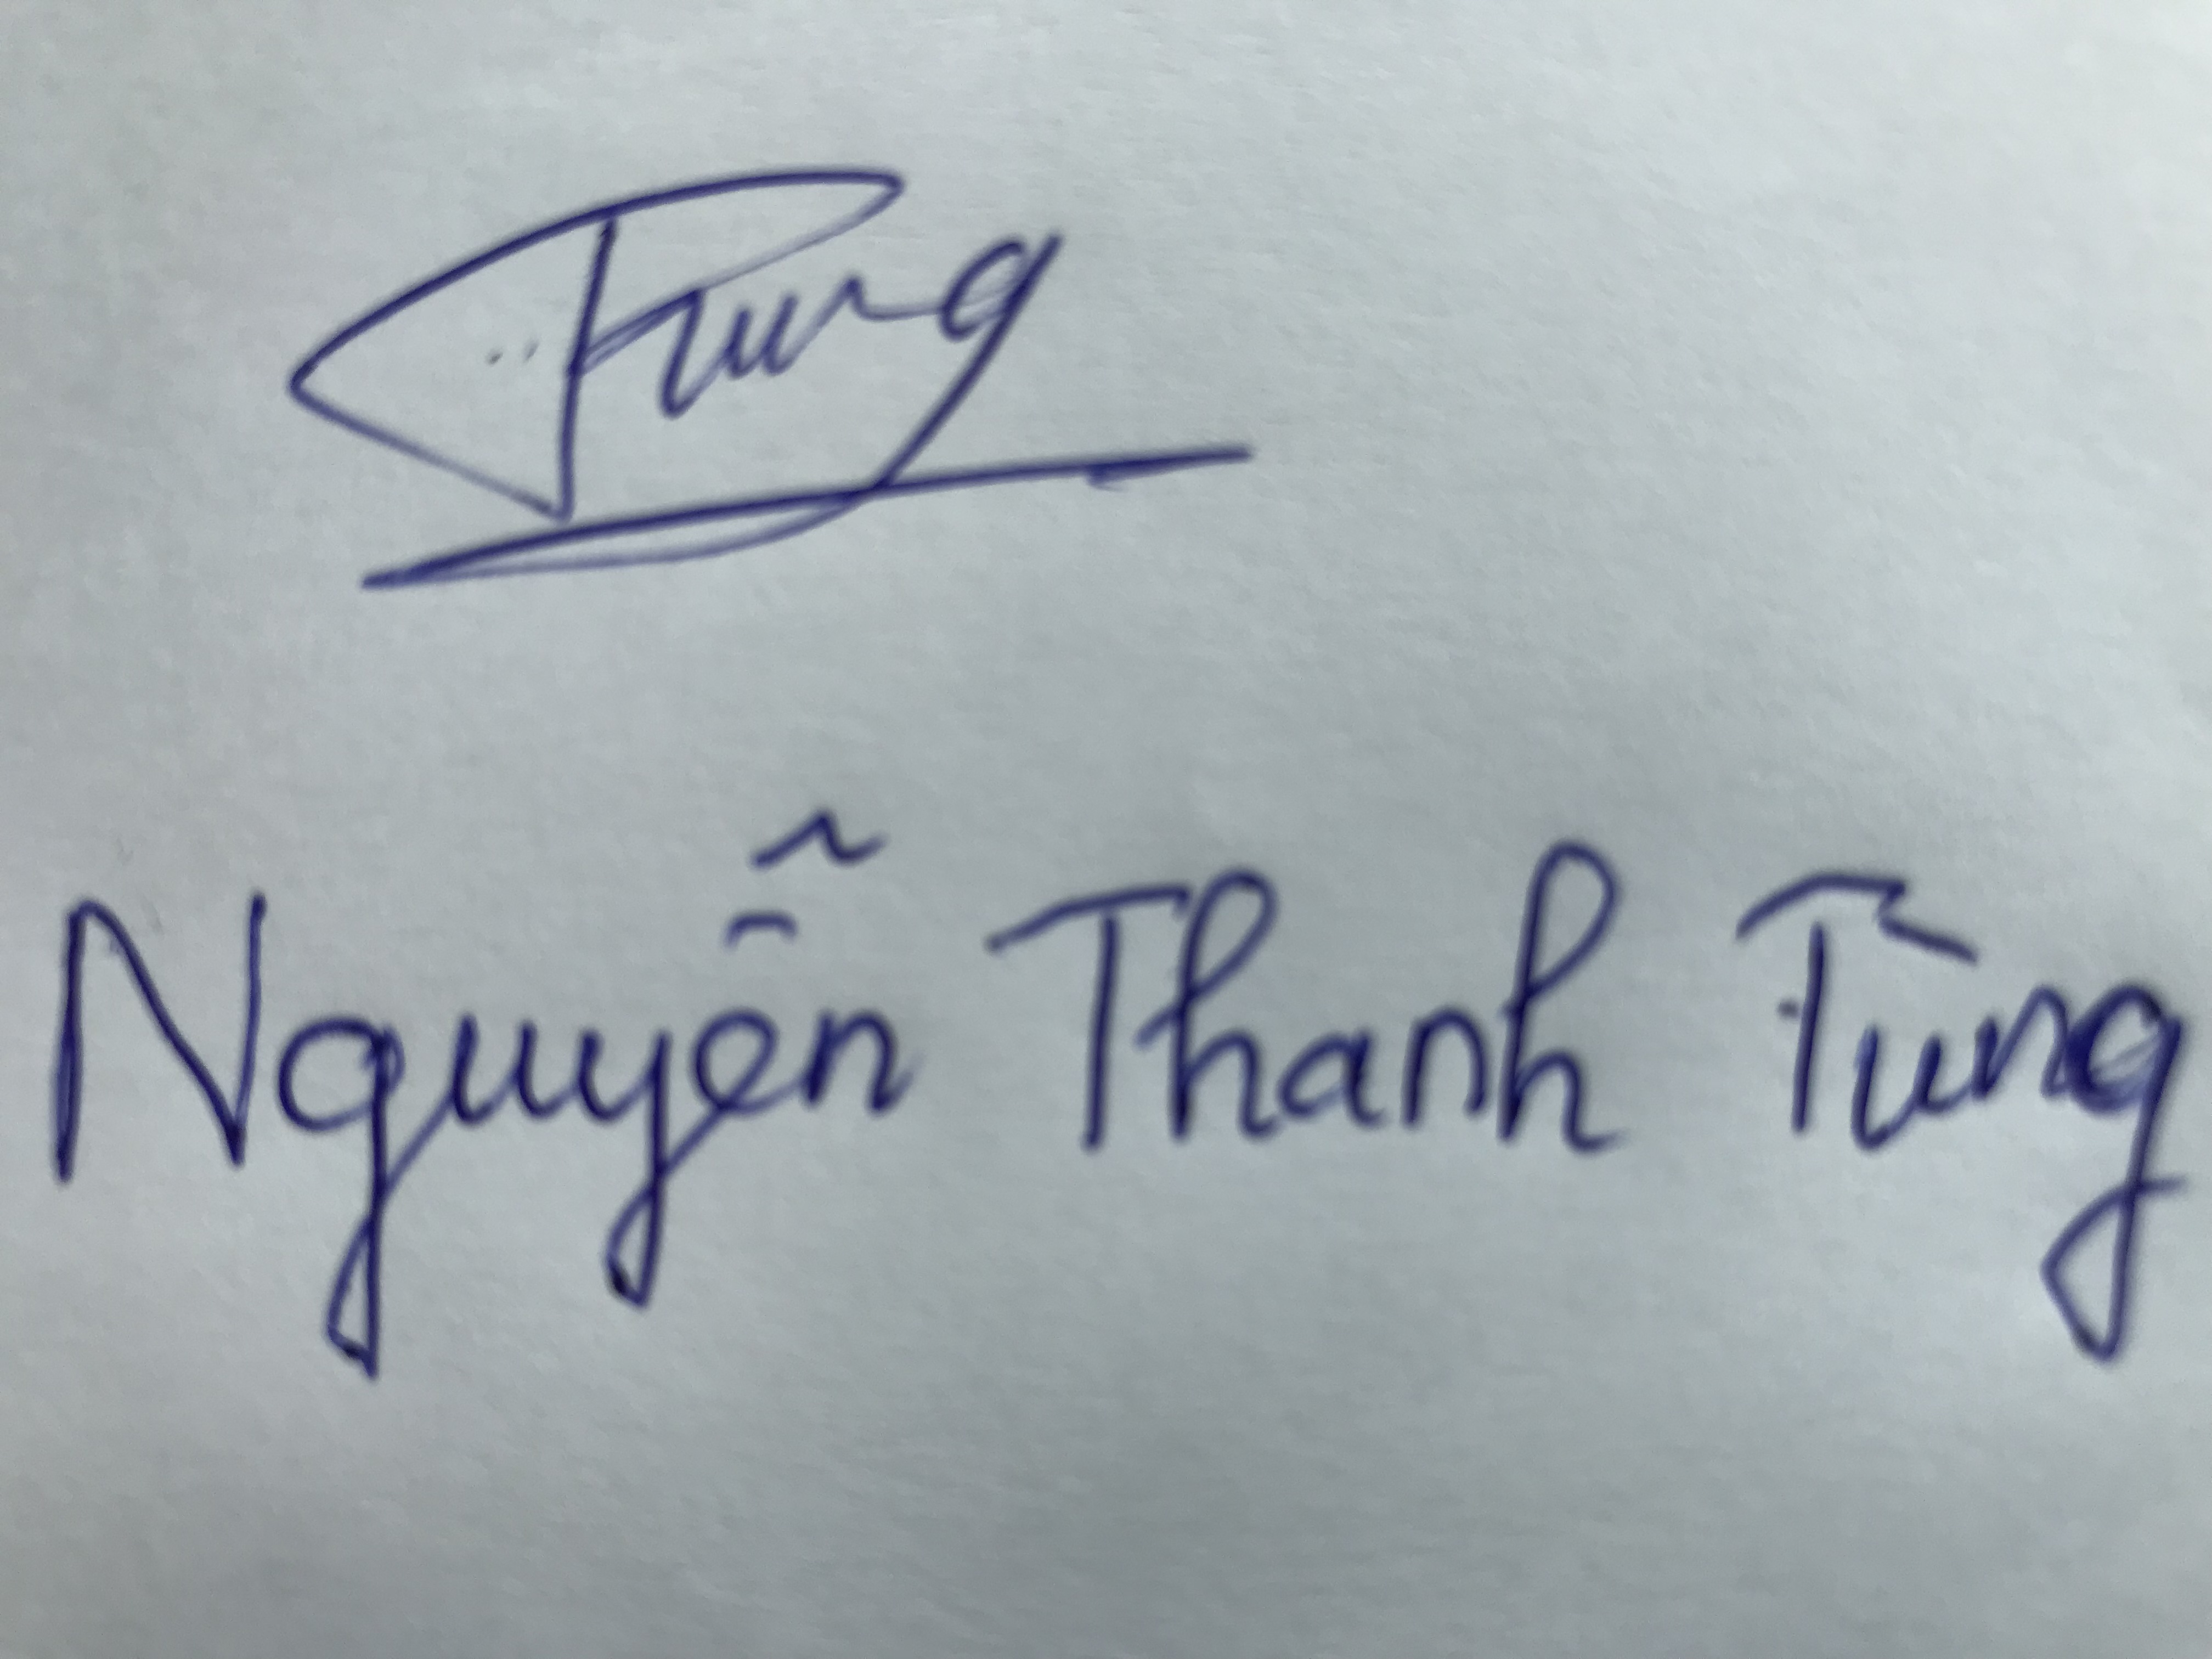 Tung
Nguyễn Thanh Tùng